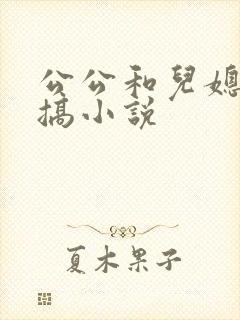 公公和兒媳
搞小說
夏木果子